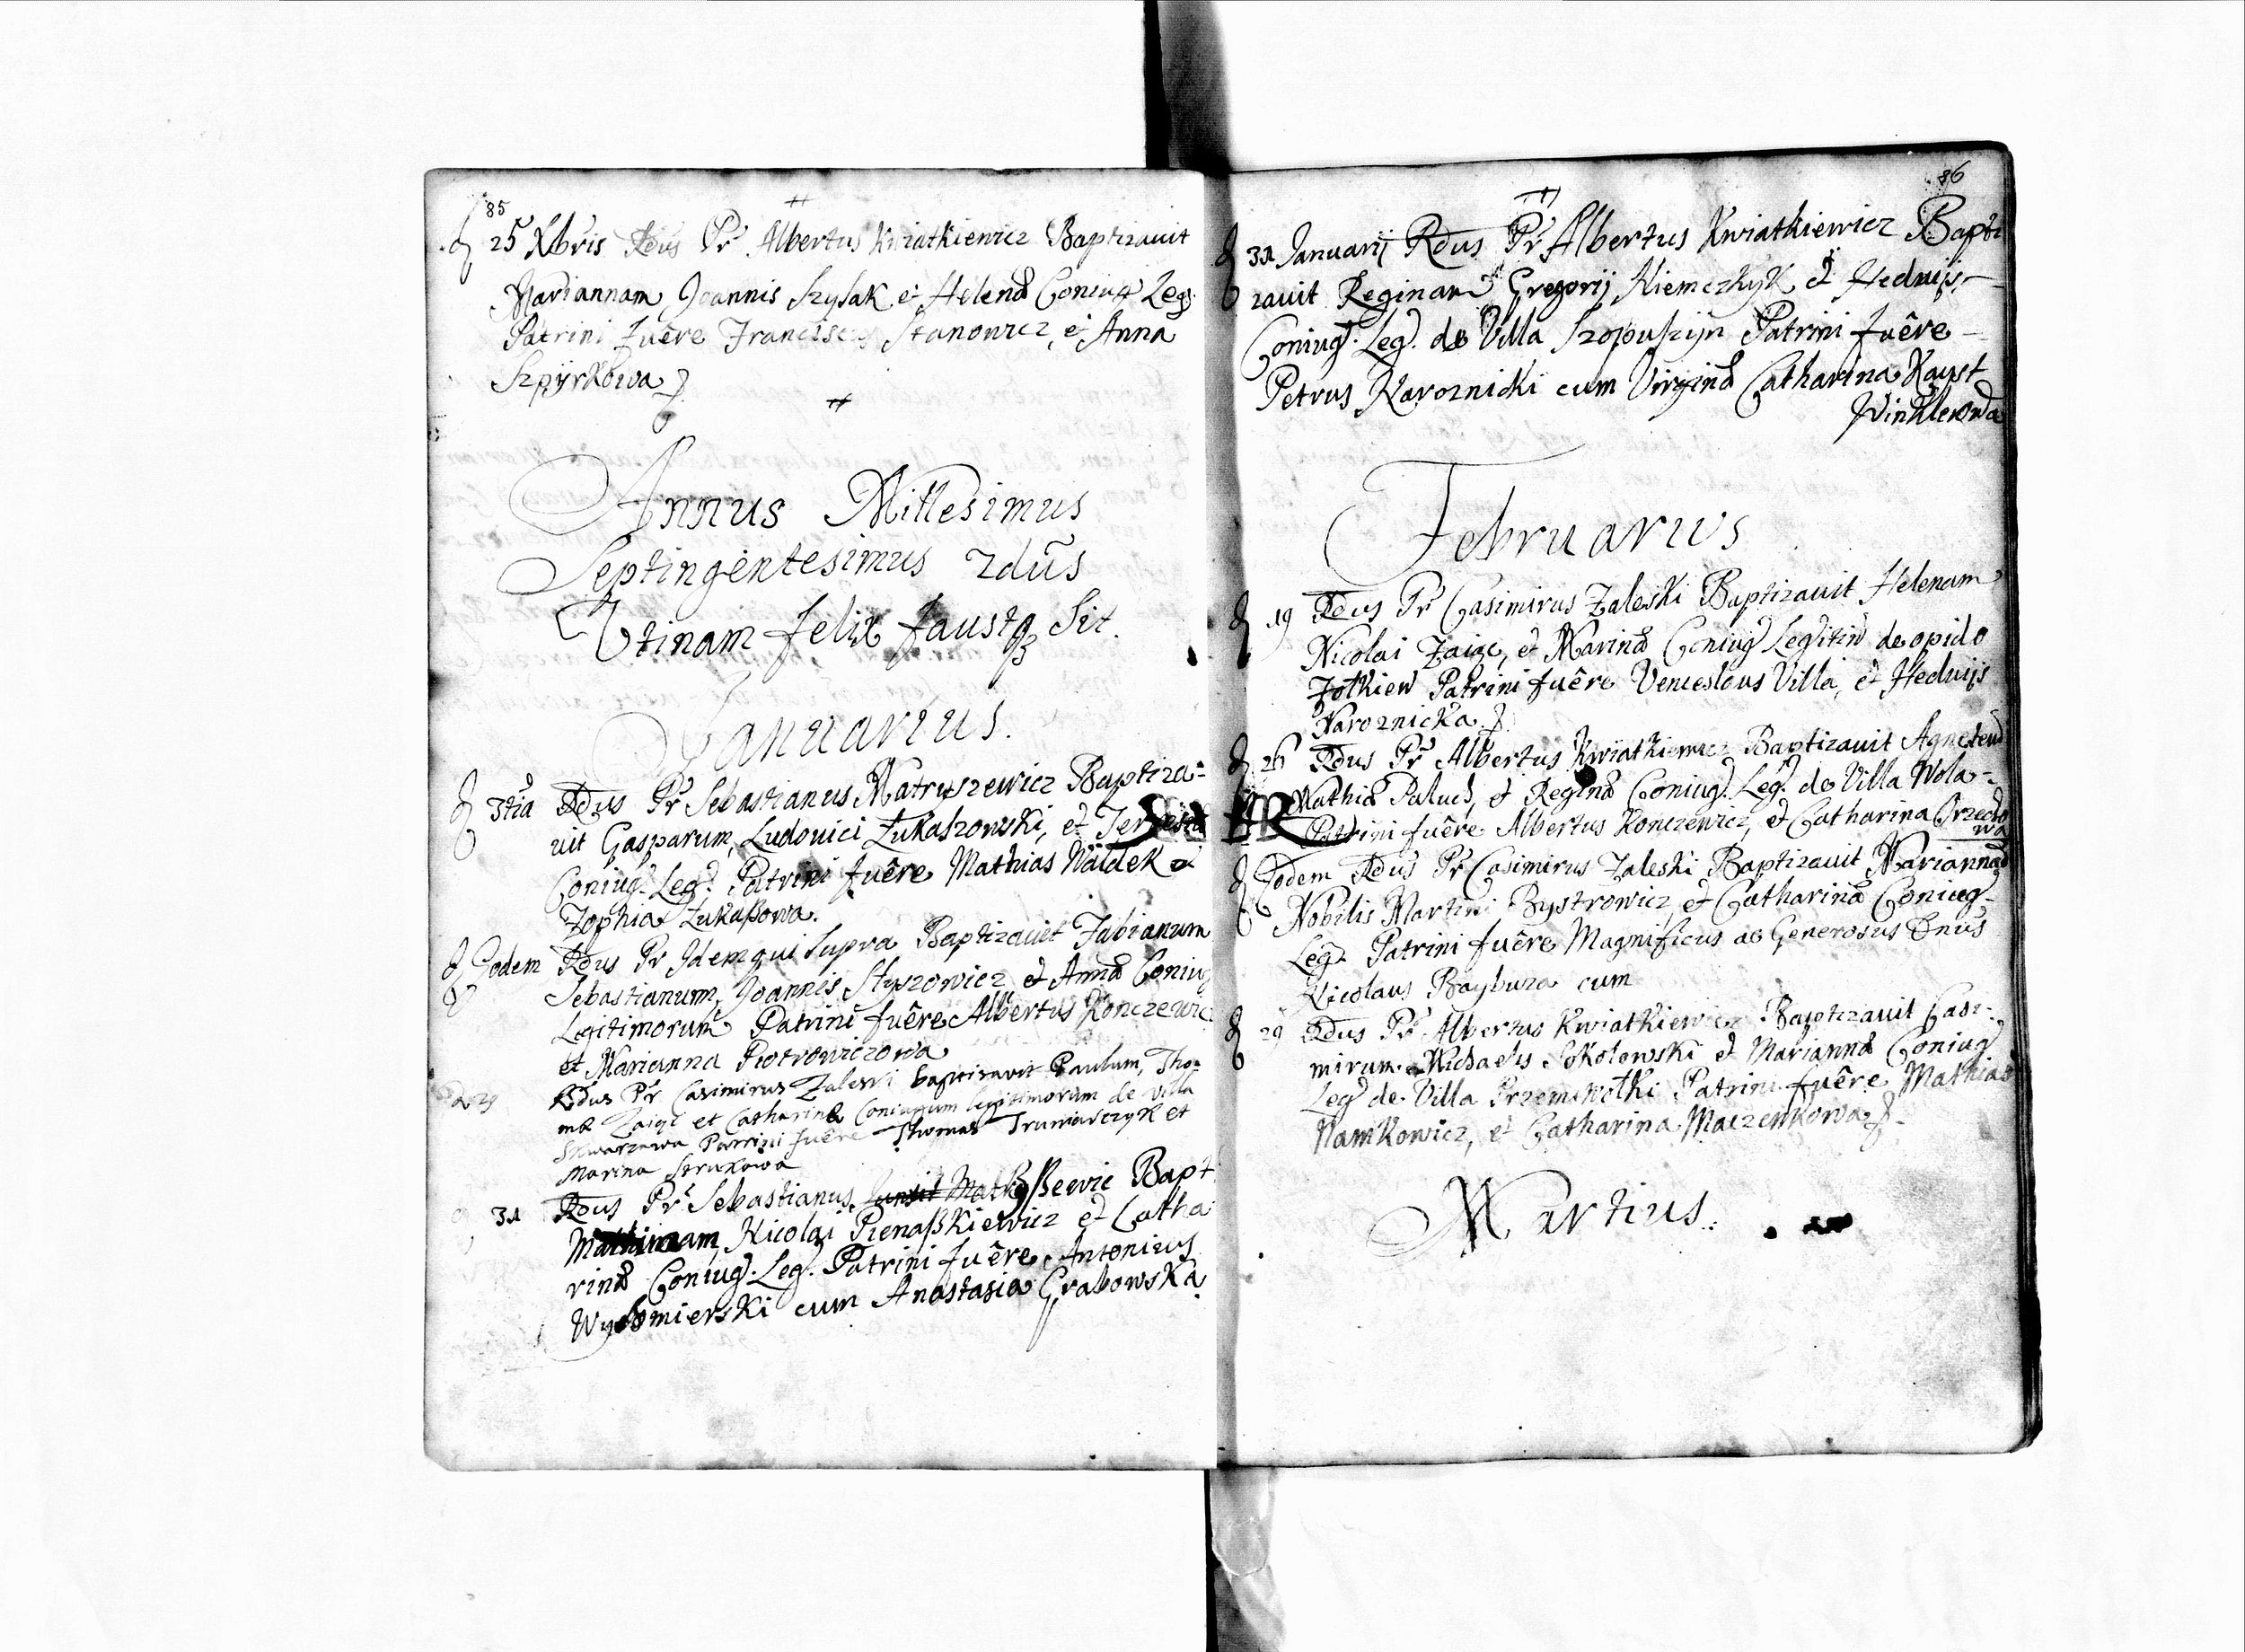 85
25 Xbris Rdus Pr Albertus Kwiatkiewicz Baptizauit
Mariannam Joannis Szysak et Helenæ Coniug Leg:
Patrini Fuêre Franciscus Stanowicz, et Anna
Szpyrkowa
Annus Millesimus
Septingentesimus 2dũs
Utinam felix faustqȝ Sit.
Januarius.
3tia Rdus Pr Sebastianus Matryszewicz Baptiza=
uit Gasparum, Ludouici Łukaszowski, et
Coniug. Leg. Patrini fuêre Mathias Waldek et
Zophia Łukaßowa.
Eodem Rdus Pr Idem qui Supra Baptizauit Fabianum
Sebastianum, Joannis Styszowicz et Annæ Coniug
Legitimorum Patrini fuêre Albertus Konczewicz
et Marianna Piotrowiczowa
Rdus Pr Casimirus Zaleski baptisavit Paulum, Tho-
mæ Zaigi et Catharinæ Coniugum legitimorum de villa
Skwarzawa Patrini fuêre Thomas Truniarczyk et
Marina Serukowa
31 Rdus Pr Sebastianus Bapt
Nicolai Pienaßkiewicz et Catha
rinæ Coniug. Leg. Patrini fuêre Antonius
cum Anastasia Grabowska
86
31 Januarij Rdus Pr Albertus Kwiatkiewicz Bapti
zauit Reginam Gregorij Niemczkyk et Heduijs
Coniug. Leg. de Villa Szopuszyn Patrini fuêre
Petrus Naroznicki cum Virginæ Catharina Kayst
Winklerowa
Februarius
19 Rdus Pr Casimirus Zaleski Baptizauit Helenam
Nicolai Zaigc, et Marinæ Coniug Legitim de opido
Zolkiew Patrini fuêre Venceslaus Villa, et Heduijs
Naroznicka
26 Rdus Pr Albertus Kwiatkiewicz Baptizauit Agnetem
Mathiæ Paluch, et Reginæ Coniug. Leg. de Villa Wola
Patrini fuêre Albertus Konczewicz, et Catharina Orzecho
wa
Eodem Rdus Pr Casimirus Zaleski Baptizauit Mariannam
Nobilis Martini Bystrowicz et Catharinæ Coniug
Leg. Patrini fuêre Magnificus ac Generosus Dnus
Nicolaus Baybuza cum
29 Rdus Pr Albertus Kwiatkiewicz Baptizauit Casi-
mirum Michaelis Sokolowski et Mariannæ Coniug
Leg de Villa Przemiwolki Patrini fuêre Mathias
Namkowicz, et Catharina Maczenkowa
Martius.